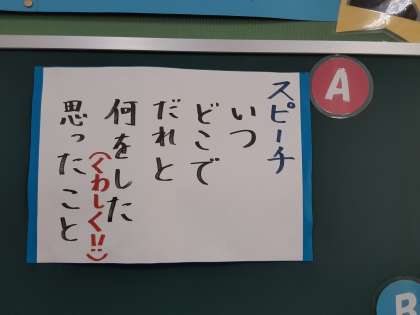 スピーチ
いつ
どこで
だれと
何をした
(くわしく!!)
思ったこと
A
B